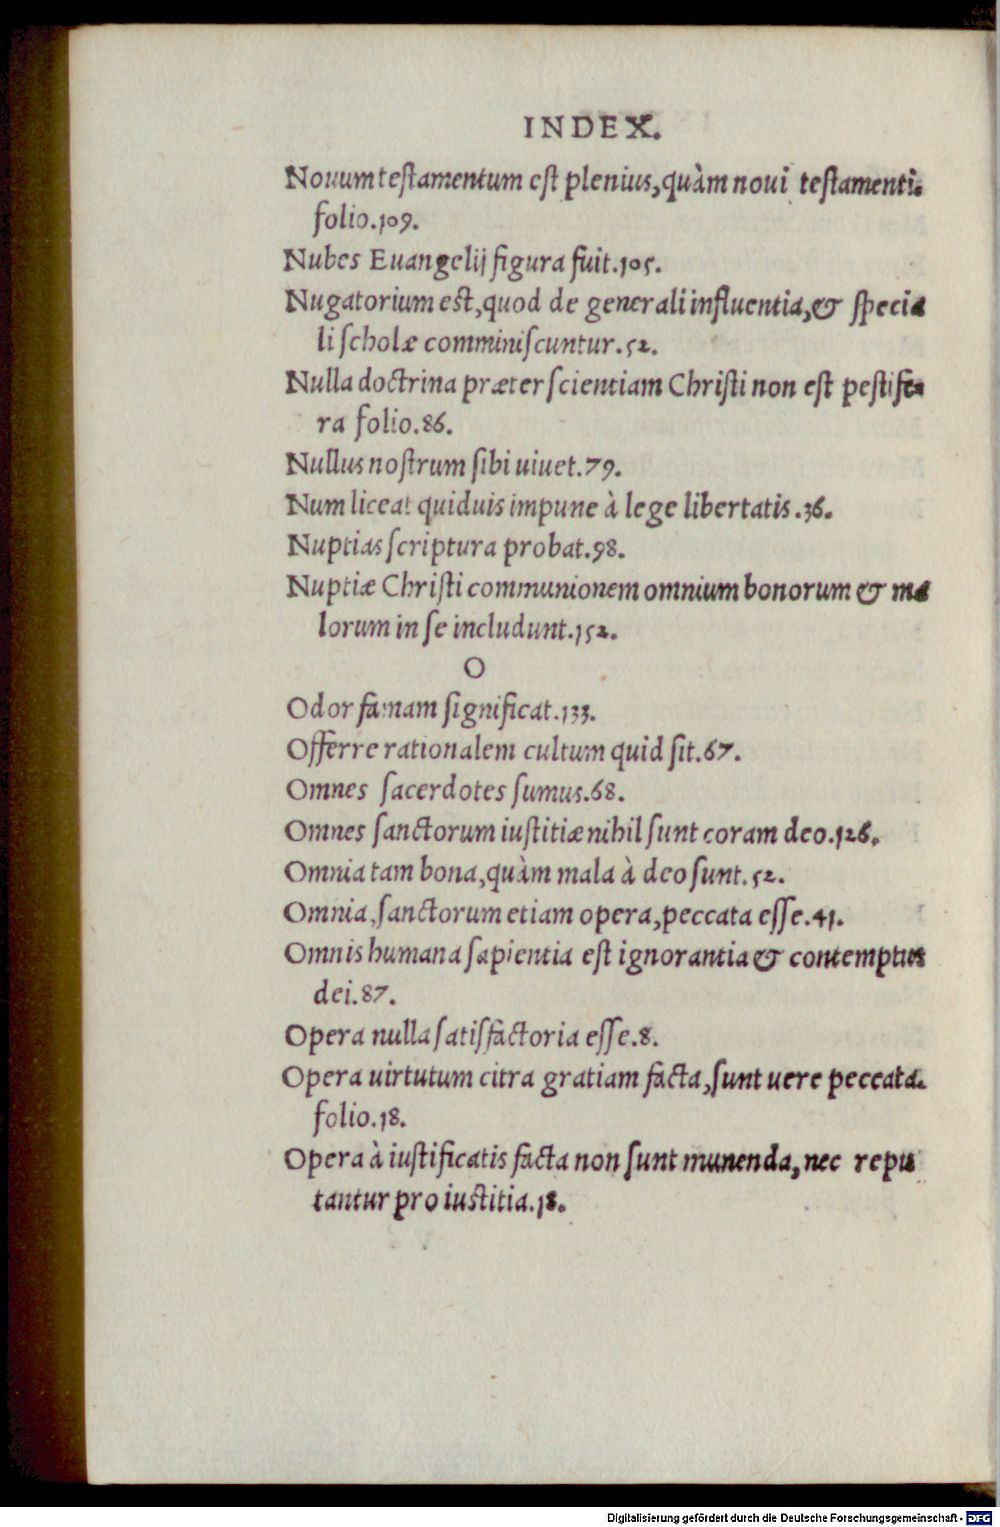 INDEX.
Nouum testamentum est plenius, quàm noui testamenti.
folio.109.
Nubes Euangelij figura fuit.105.
Nugatorium est, quod de generali influentia, & specia
li scholæ comminiscuntur.52.
Nulla doctrina præter scientiam Christi non est pestife-
ra folio.86.
Nullus nostrum sibi uiuet.79.
Num liceat quiduis impune à lege libertatis.36.
Nuptias scriptura probat.98.
Nuptiæ Christi communionem omnium bonorum & ma
lorum in se includunt.152.
O
Odor famam significat.133.
Offerre rationalem cultum quid sit.67.
Omnes sacerdotes sumus.68.
Omnes sanctorum iustitiæ nihil sunt coram deo.126.
Omnia tam bona, quàm mala à deo sunt.52.
Omnia, sanctorum etiam opera, peccata esse.41.
Omnis humana sapientia est ignorantia & contemptus
dei.87.
Opera nulla satisfactoria esse.8.
Opera uirtutum citra gratiam facta, sunt uere peccata.
folio.18.
Opera à iustificatis facta non sunt munenda, nec repu
tantur pro iustitia.18.
Digitalisierung gefördert durch die Deutsche Forschungsgemeinschaft - DFG